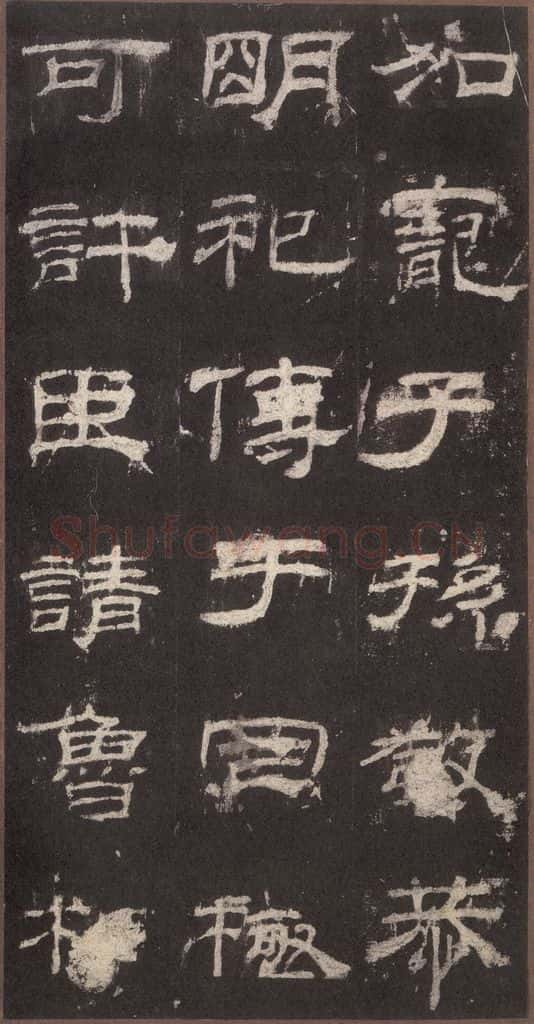 加寵子孫敬恭
明祀傳于罔極
可許臣請魯相
Shufawang.CN